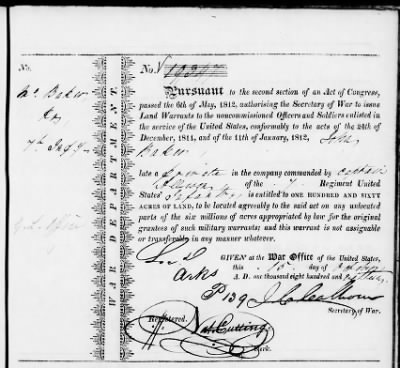 No.
Baker
WAR DEPARTMENT.
No.
Pursuant to the second section of an Act of Congress,
passed the 6th of May, 1812, authorising the Secretary of War to issue
Land Warrants to the noncommissioned Officers and Soldiers enlisted
in the service of the United States, conformably to the acts of the 24th of
December, 1811, and of the 11th of January, 1812, John
Baker
late a Private in the company commanded by captain
of the 7 Regiment United
States' Infantry is entitled to ONE HUNDRED AND SIXTY
ACRES OF LAND, to be located agreeably to the said act on any unlocated
parts of the six millions of acres appropriated by law for the original
grantees of such military warrants; and this warrant is not assignable
or transferable in any manner whatever.
GIVEN at the War Office of the United States,
this 15 day of
A. D. one thousand eight hundred and
Arks
P 139 J. C. Calhoun
Secretary of War.
Registered.
Nat Cutting
Clerk.